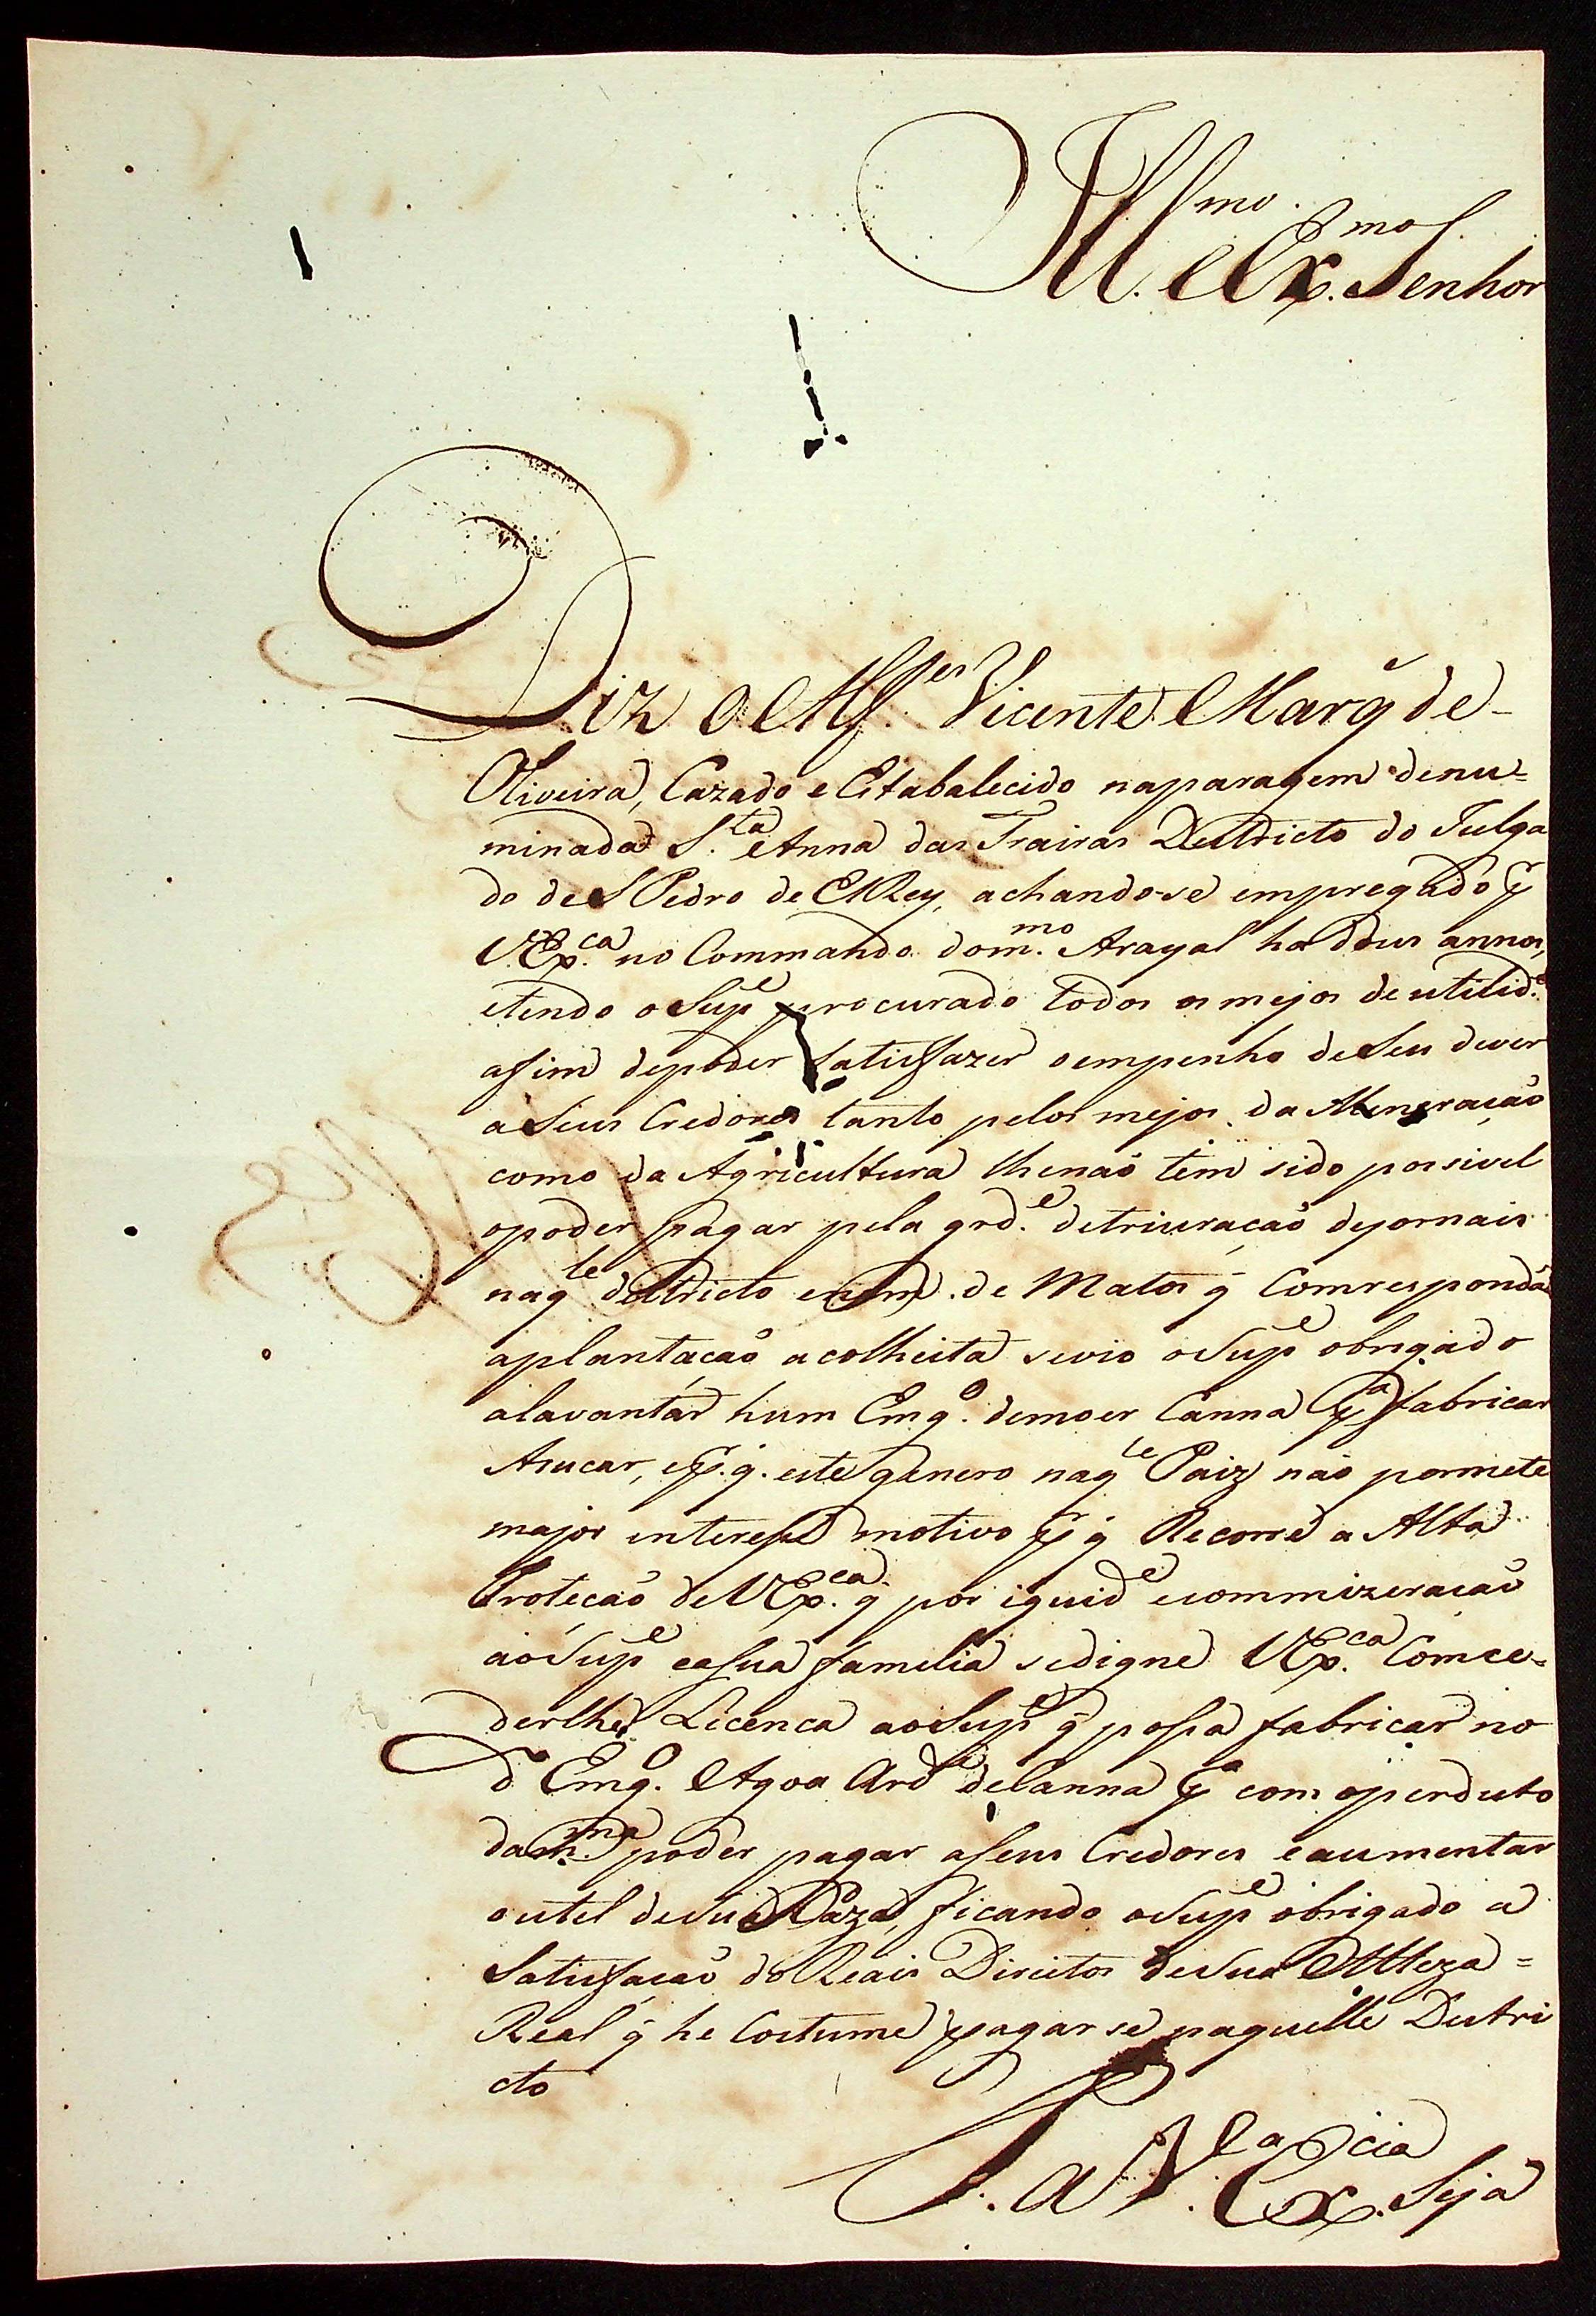 Ill.mo e Ex.mo Senhor
Diz o Alf.es Vicente Marq̃ de
Oliveira, Cazado e Estabalecido naparagem denu=
minada S.ta Anna das Trairas Destricto do Julga
do de S Pedro de ElRey, achando-se empregado p̃
V.Ex.ca no Commando dom.mo Arayal ha dous annos,
etendo o Sup.e procurado todos os mejos de utilid.e
afim depoder satisfazer o empenho deSeu dever
aSeus Credores tanto pelos mejos da Mineração
como da Agricultura lhenaõ tem sido possivel
opoder pagar pela grd.e detriuração dejornais
naq.le destricto enem de Matos q̃ Comrespondão
aplantação acolheita sevio oSup.e obrigado
alavantar hum Eng.o demoer Canna p.a fabricar
Asucar, e p.q. este genero naq.le Paiz naõ permete
major interese motivo p̃ q̃ Recorre a Alta
Proteção de VEx.ca q̃ por iguid.e ecommizeração
aoSup.e easua familia sedigne VEx.ca Comce=
derlhe Licenca aoSup.e q̃ posa fabricar no
d.o Eng.o Agoa Ard.e deCanna p.a com operduto
dam.ma poder pagar aseus Credores eaumentar
outel desua Caza, ficando oSup.e obrigado a
Satisfação do Reais Direitos deSua Alteza=
Real q̃ he Costume pagar se naquelle Destri
cto
P. a V. Ex.cia Seja